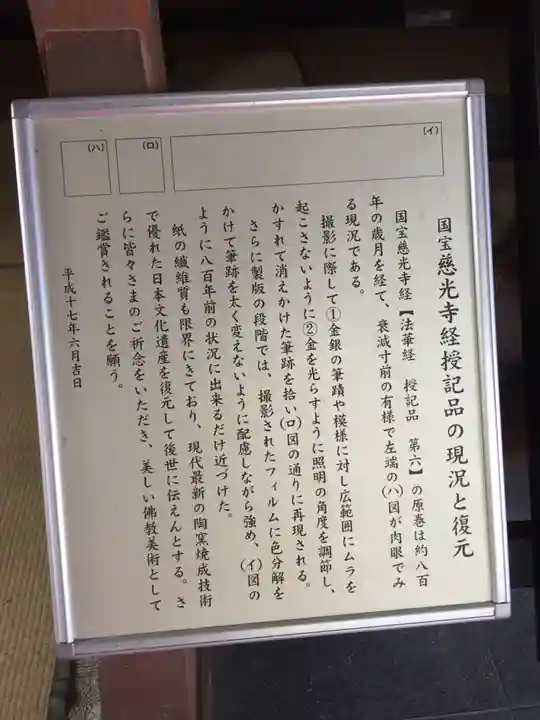 (イ)
(ロ)
(ハ)
国宝慈光寺経授記品の現況と復元
国宝慈光寺経【法華経 授記品 第六】の原巻は約八百
年の歳月を経て、衰滅寸前の有様で左端の(ハ)図が肉眼でみ
る現況である。
撮影に際して①金銀の筆蹟や模様に対し広範囲にムラを
起こさないように②金を光らすように照明の角度を調節し、
かすれて消えかけた筆跡を拾い(ロ)図の通りに再現される。
さらに製版の段階では、撮影されたフィルムに色分解を
かけて筆跡を太く変えないように配慮しながら強め、(イ)図の
ように八百年前の状況に出来るだけ近づけた。
紙の繊維質も限界にきており、現代最新の陶窯焼成技術
で優れた日本文化遺産を復元して後世に伝えんとする。さ
らに皆々さまのご祈念をいただき、美しい佛教美術として
ご鑑賞されることを願う。
平成十七年六月吉日